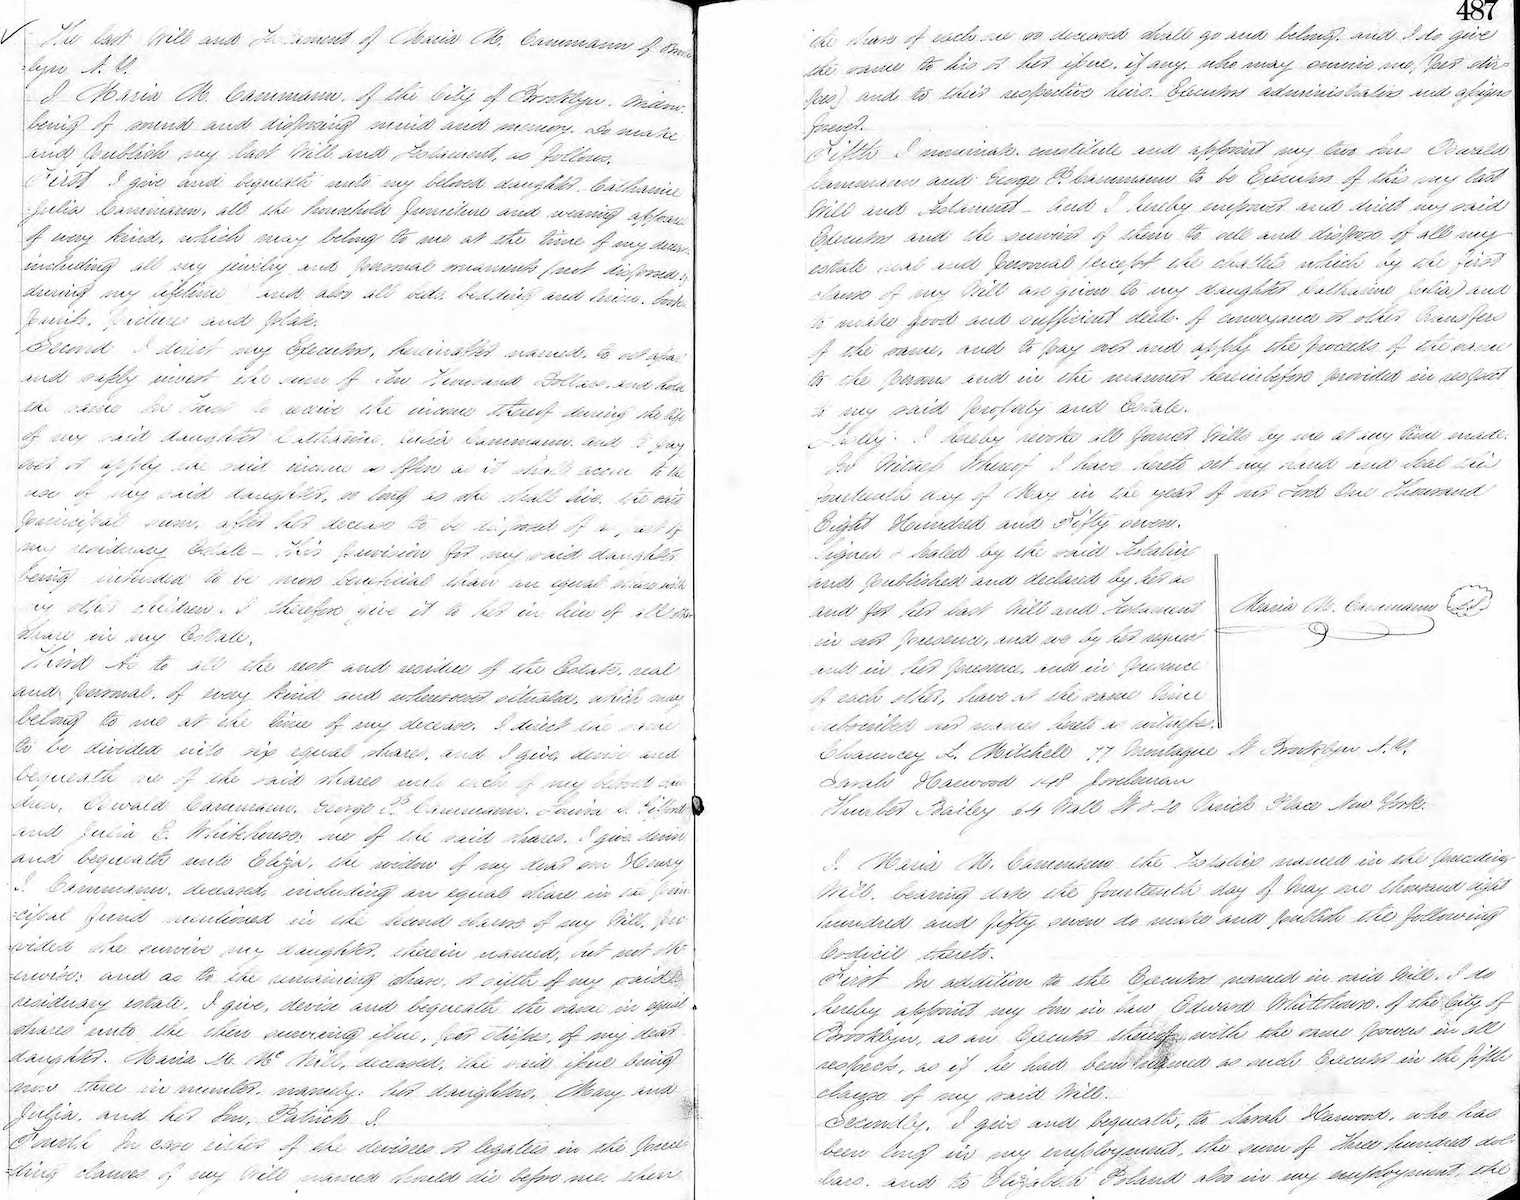 The last Will and Testament of Maria M. Cammann of Brook
=lyn N.Y.
I Maria M. Cammann, of the City of Brooklyn, Widow,
being of sound and disposing mind and memory, do make
and publish my last Will and Testament, as follows.
First I give and bequeath unto my beloved daughter, Catharine
Julia Cammann, all the household furniture and wearing apparel
of every kind, which may belong to me at the time of my decease,
including all my jewelry and personal ornaments (not disposed of
during my lifetime) and also all beds, bedding and linen, books
prints, pictures and plate.
Second I direct my Executors, hereinafter named, to set apart
and safely invest the sum of Ten Thousand Dollars, and hold
the same in Trust to receive the income thereof during the life
of my said daughter Catharine Julia Cammann and to pay
over or apply the said income as often as it shall accrue to the
use of my said daughter, so long as she shall live, the said
principal sum, after her decease to be disposed of as part of
my residuary Estate – This provision for my said daughter
being intended to be more beneficial than an equal share with
my other children, I therefore give it to her in lieu of all other
share in my Estate.
Third As to all the rest and residue of the Estate, real
and personal, of every kind and wheresoever situated, which may
belong to me at the time of my decease, I direct the same
to be divided into six equal shares, and I give, devise and
bequeath one of the said shares unto each of my beloved chil
dren, Oswald Cammann, George P. Cammann, Louisa
and Julia E. Whitehouse; one of the said shares, I give, devise
and bequeath unto Eliza, the widow of my dear son Henry
I. Cammann, deceased, including an equal share in the prin
=cipal fund mentioned in the second clause of my Will, pro
=vided she survive my daughter, therein named, but not oth
=erwise; and as to the remaining share, or sixth of my said
residuary estate, I give, devise and bequeath the same in equal
shares unto the then surviving issue, per stirpes, of my dear
daughter, Maria M. Mc Will, deceased, the said issue being
now three in number, namely, her daughters, Mary and
Julia, and her Son, Patrick I.
Fourth In case either of the devisees or legatees in the prece
=ding clauses of my Will named should die before me, then
487
the share of each one so deceased shall go and belong, and I do give
the same to his or her issue, if any, who may survive me, (per stir=
pes) and to their respective heirs, Executors administrators and assigns
forever.
Fifth I nominate, constitute and appoint my two sons Oswald
Cammann and George P. Cammann to be Executors of this my last
Will and Testament – and I hereby empower and direct my said
Executors and the survivor of them to sell and dispose of all my
estate real and personal (except the chattels which by the first
clause of my Will are given to my daughter Catharine Julia) and
to make good and sufficient deeds of conveyance or other transfers
of the same, and to pay over and apply the proceeds of the same
to the persons and in the manner hereinbefore provided in respect
to my said property and Estate.
Lastly. I hereby revoke all former Wills by me at any time made.
In Witness Whereof I have hereto set my hand and seal this
fourteenth day of May in the year of our Lord One Thousand
Eight Hundred and Fifty seven.
Signed & Sealed by the said Testatrix
and published and declared by her as
and for her last Will and Testament
in our presence, and we by her request
and in her presence, and in presence
of each other, have at the same time
subscribed our names hereto as witnesses.
Maria M. Cammann L.S.
Chauncey L. Mitchell 77 Montague St Brooklyn N.Y.
Sarah Harwood
Thurber Bailey 64 Wall St & 20 Place New York.
I. Maria M. Cammann the Testatrix named in the preceding
Will, bearing date the fourteenth day of May one thousand eight
hundred and fifty seven do make and publish the following
Codicil thereto.
First In addition to the Executors named in said Will, I do
hereby appoint my son in law Edward Whitehouse, of the City of
Brooklyn, as an Executor thereof with the same powers in all
respects, as if he had been named as such Executor in the fifth
clause of my said Will.
Secondly. I give and bequeath, to Sarah Harwood, who has
been long in my employment, the sum of Three hundred dol
lars, and to Elizabeth Poland also in my employment, the